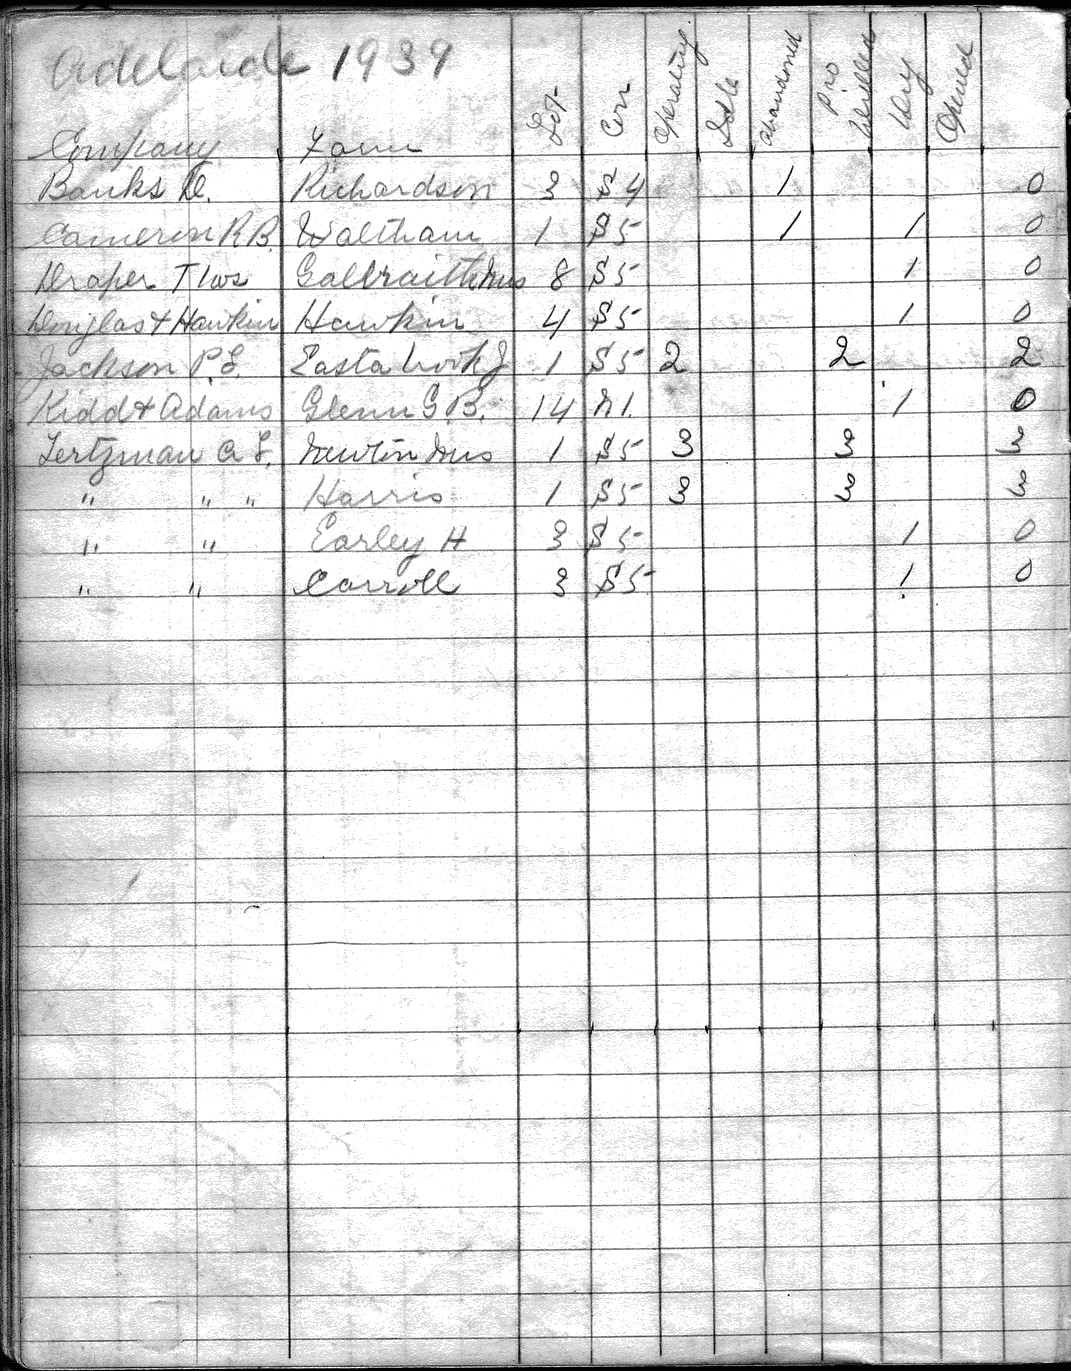 Adelaide 1939
Company Farm Lot Con Operating Idle Abandoned Pro Drilled Dry Opened
Banks D. Richardson 3 S4 1 0
Cameron R.B. Waltham 1 S5 1 1 0
Draper Thos Galbraith Mrs 8 S5 1 0
Douglas & Hawkin Hawkin 4 S5 1 0
Jackson P.E. Eastabrook J 1 S5 2 2 2
Kidd & Adams Glenn G.B. 14 N1. 1 0
Lertzman A.L. Newton Mrs 1 S5 3 3 3
" " " Harris 1 S5 3 3 3
" " Earley H 3 S5 1 0
" " Carroll 3 S5 1 0